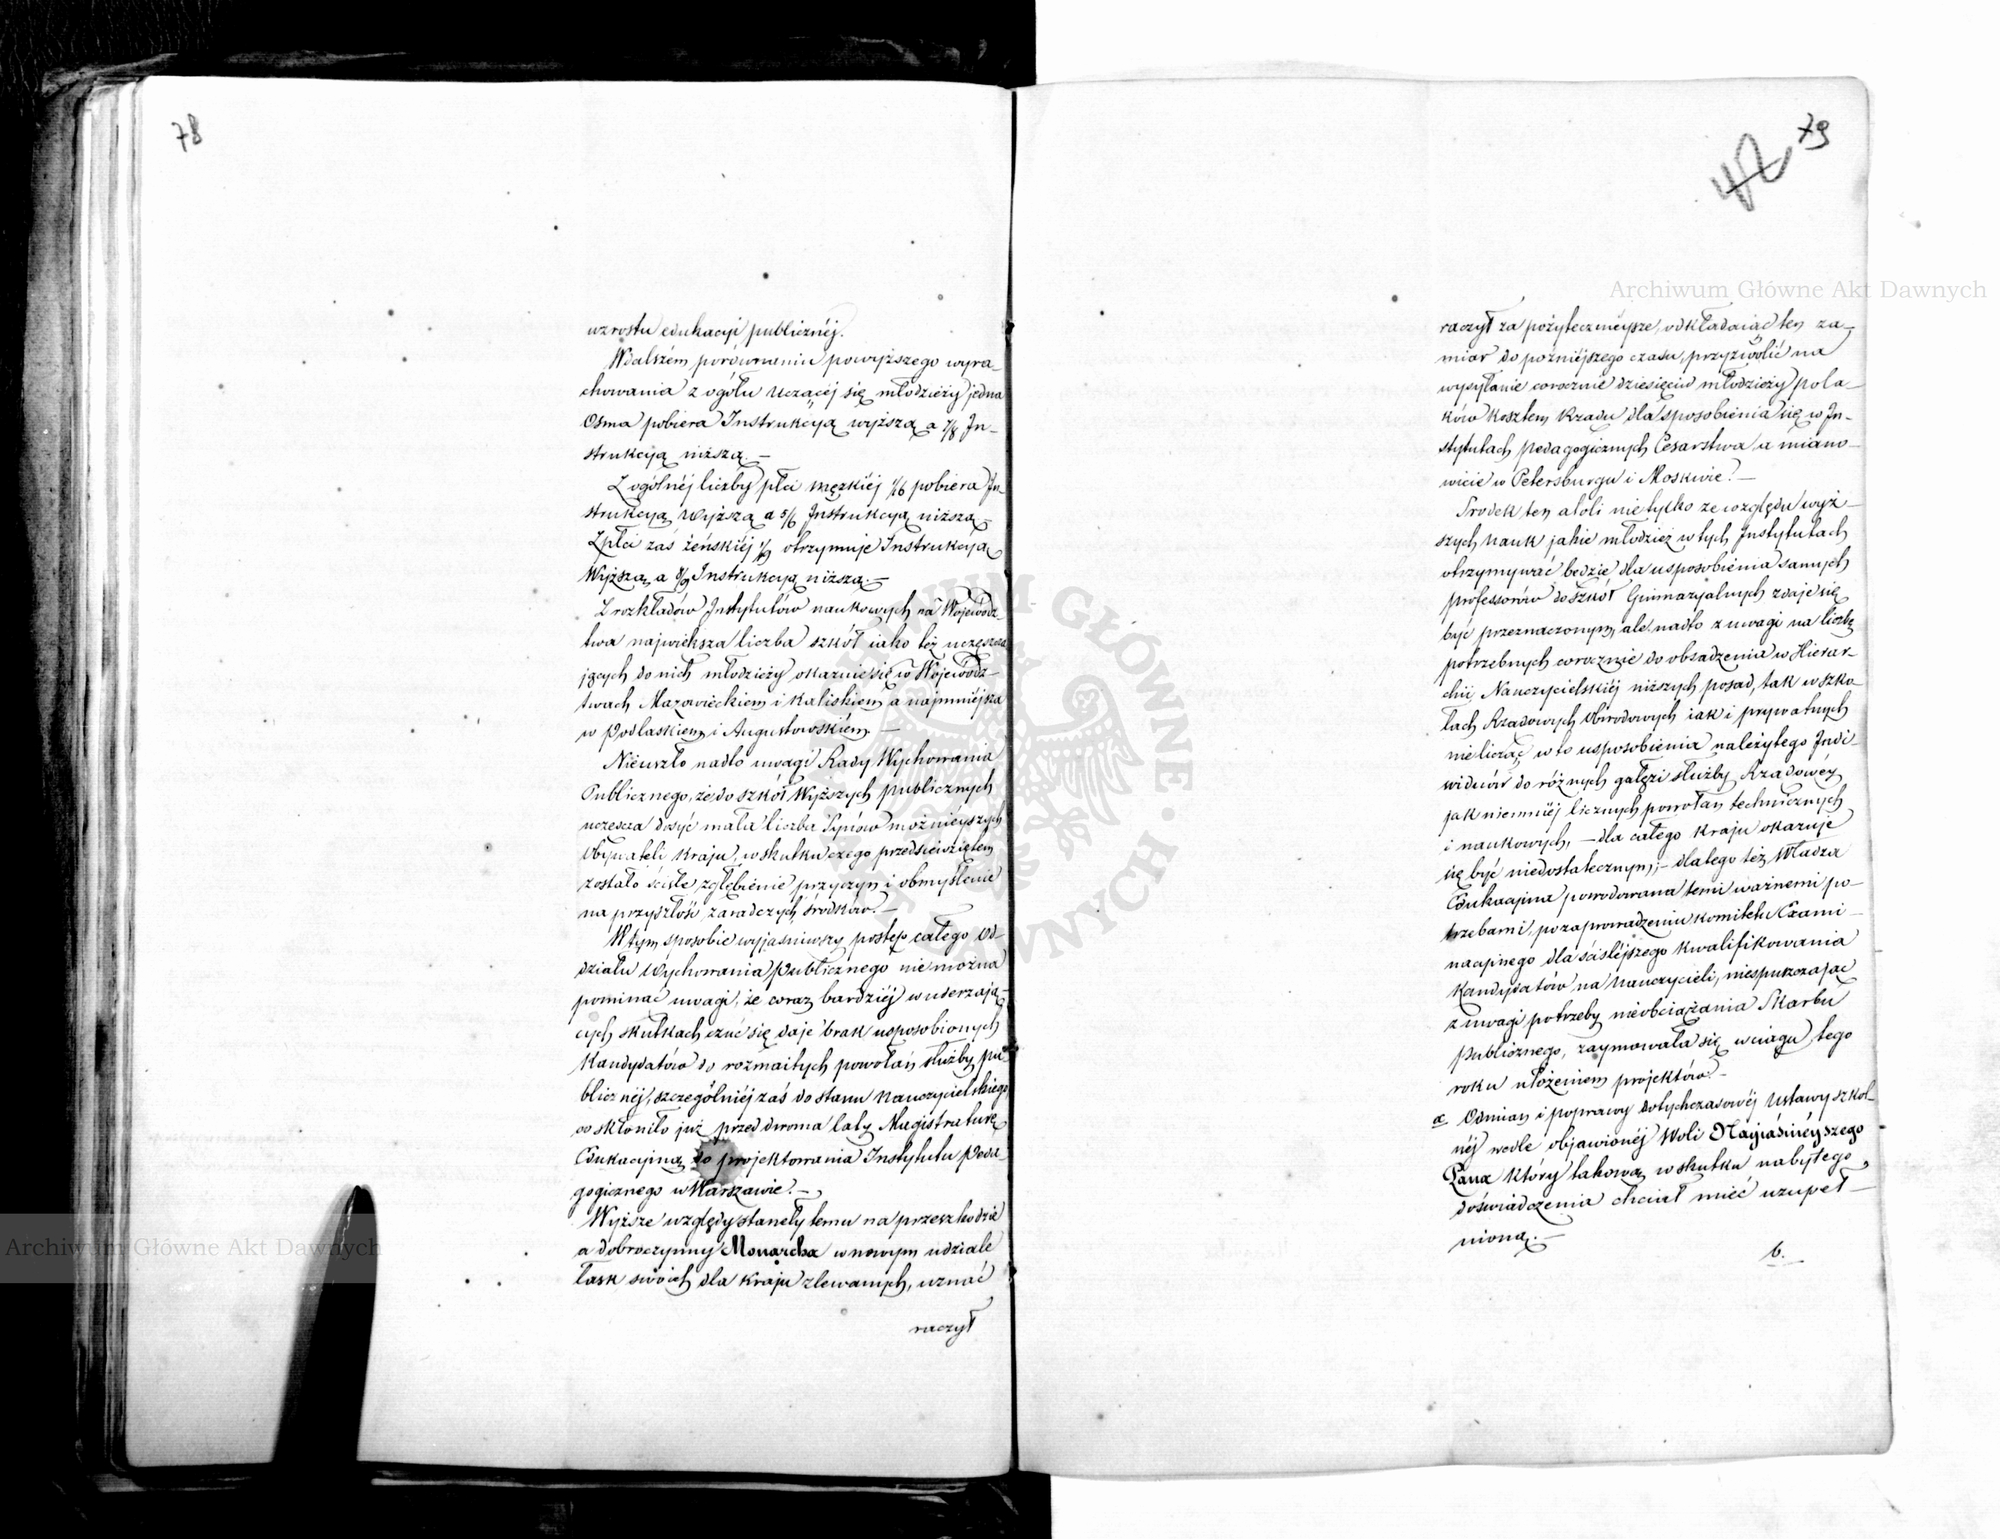 78
wzrostu edukacyi publicznéj.
Wdalszém porównaniu powyższego wyra-
chowania z ogółu uczącéj się młodzieży jedna
Osma pobiera Instrukcyą wyższą a 7/8 In-
strukcyą niższą. —
Z ogólnéj liczby płci męzkiéj 1/6 pobiera In-
strukcyą Wyższą a 5/6 Instrukcyą niższą —
Z płci zaś żeńskiéj 1/9 otrzymuje Instrukcyą
Wyższą, a 8/9 Instrukcyą niższą. —
Z rozkładów Instytutów naukowych na Wojewódz-
twa największa liczba szkół iako też uczęszcza
jących do nich młodzieży okazuie się w Wojewódz-
twach Mazowieckiem i Kaliskiem a najmniéjsza
w Podlaskiem i Augustowskiém. —
Nieuszło nadto uwagi Rady Wychowania
Publicznego, że do szkół Wyższych publicznych
uczęszcza dosyć mała liczba Synów możniéyszych
Obywateli Kraju, w skutku czego przedsięwziętem
zostało ściśle zgłębienie przyczyn i obmyślenie
na przyszłość zaradczych środków. —
W tym sposobie wyjaśniwszy postęp całego Od-
działu Wychowania Publicznego nie można
pominąć uwagi, że coraz bardziéj w uderzają-
cych skutkach czuć się daje brak usposobionych
Kandydatów do rozmaitych powołań służby pu
blicznéj, szczególniéj zaś do stanu Nauczycielskiego
co skłoniło już przed dwoma laty Magistraturę
Edukacyjną do projektowania Instytutu Peda-
gogicznego w Warszawie. —
Wyższe względy stanęły temu na przeszkodzie
a dobroczynny Monarcha w nowym udziale
Łask swoich dla Kraju zlewanych, uznać
raczył
79
42
raczył za pożyteczniéjsze, odkładaiąc ten za-
miar do poźniéjszego czasu, przyzwolić na
wysyłanie corocznie dziesięciu młodzieży pola-
ków kosztem Rządu dla sposobienia się w In-
stytutach pedagogicznych Cesarstwa, a miano-
wicie w Petersburgu i Moskwie. —
Srodek ten atoli nie tylko ze względu wyż-
szych nauk jakie młodzież w tych Instytutach
otrzymywać będzie dla usposobienia samych
professorów do szkół Gimnazyalnych zdaje się
być przeznaczonym, ale nadto z uwagi na liczbę
potrzebnych corocznie do obsadzenia w Hierar-
chii Nauczycielskiéj niższych posad, tak w szko-
łach Rządowych Obwodowych iak i prywatnych
nie licząc w to usposobienia należytego Indi-
widuów do różnych gałęzi służby Rządowéy
jak niemniéj licznych powołań technicznych
i naukowych, — dla całego kraju okazuje
się być niedostatecznym; — dlatego też Władza
Edukacyjna powodowana temi ważnemi po-
trzebami, po zaprowadzeniu komitetu Exami-
nacyjnego dla ściśléjszego kwalifikowania
Kandydatów na Nauczycieli, niespuszczając
z uwagi potrzeby nieobciążania Skarbu
publicznego, zaymowała się w ciągu tego
roku ułożeniem projektów. —
a Odmian i poprawy dotychczasowéj Ustawy szkol-
néj wedle objawionéj Woli Nayiaśniéyszego
Pana który takową w skutku nabytego
doświadczenia chciał mieć uzupeł-
nioną. —
b.
Archiwum Główne Akt Dawnych
Archiwum Główne Akt Dawnych